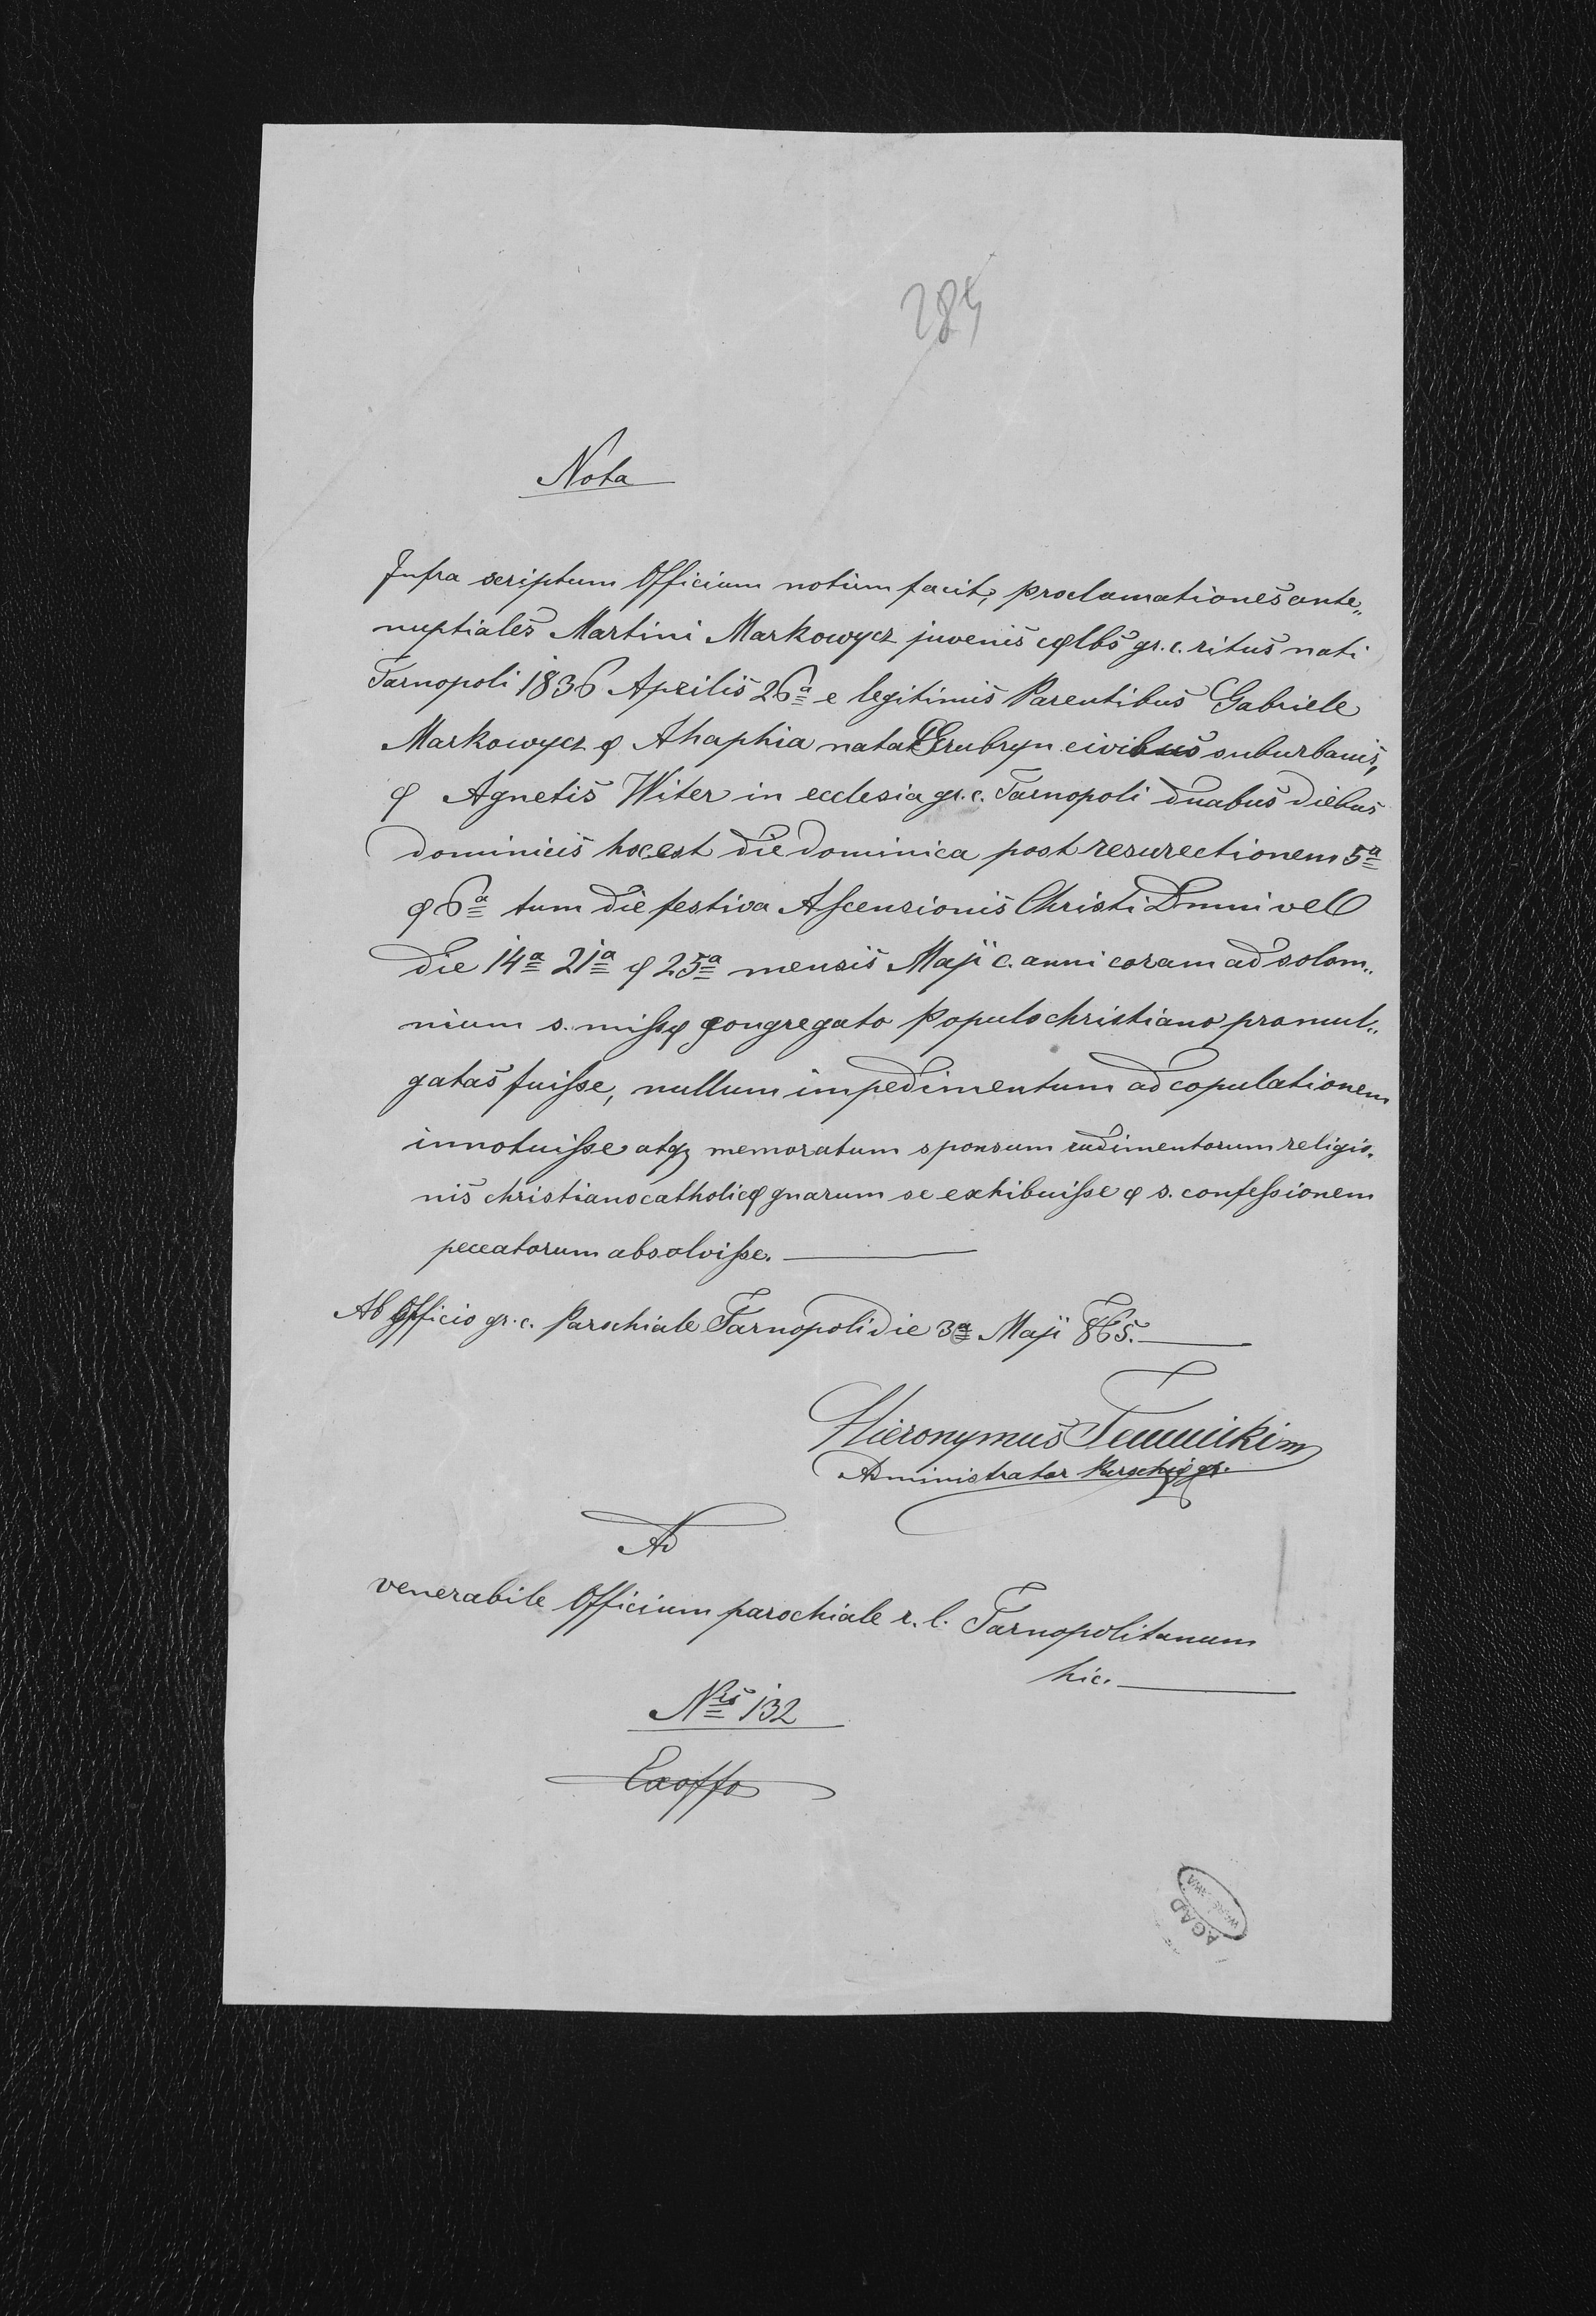 284
Nota
Infra scriptum Officium notum facit, proclamationes ante„
nuptiales Martini Markowycz juvenis cœlbs gr. c. ritus nati
Tarnopoli 1836 Aprilis 26ª e legitimis Parentibus Gabriele
Markowycz & Ahaphia nata Hrubryn civibus suburbanis,
& Agnetis Witer in ecclesia gr. c. Tarnopoli duabus diebus
dominicis hoc est die dominica post resurectionem 5ª
& 6ª tum die festiva Ascensionis Christi Dmni vel
die 14ª 21ª & 25ª mensis Maji c. anni coram ad solom„
nium s. missæ congregato populo christiano promul„
gatas fuisse, nullum impedimentum ad copulationem
innotuisse atq memoratum sponsum rudimentorum religio„
nis christianocatholicæ gnarum se exhibuisse & s. confessionem
peccatorum absolvisse.
Ab Officio gr. c. Parochiale Tarnopoli die 3ª Maji 865.
Hieronymus
Administrator Parochiæ gr.
Ad
venerabile Officium parochiale r. l. Tarnopolitanum
hic.
Nris 132
Exoffo
AGAD